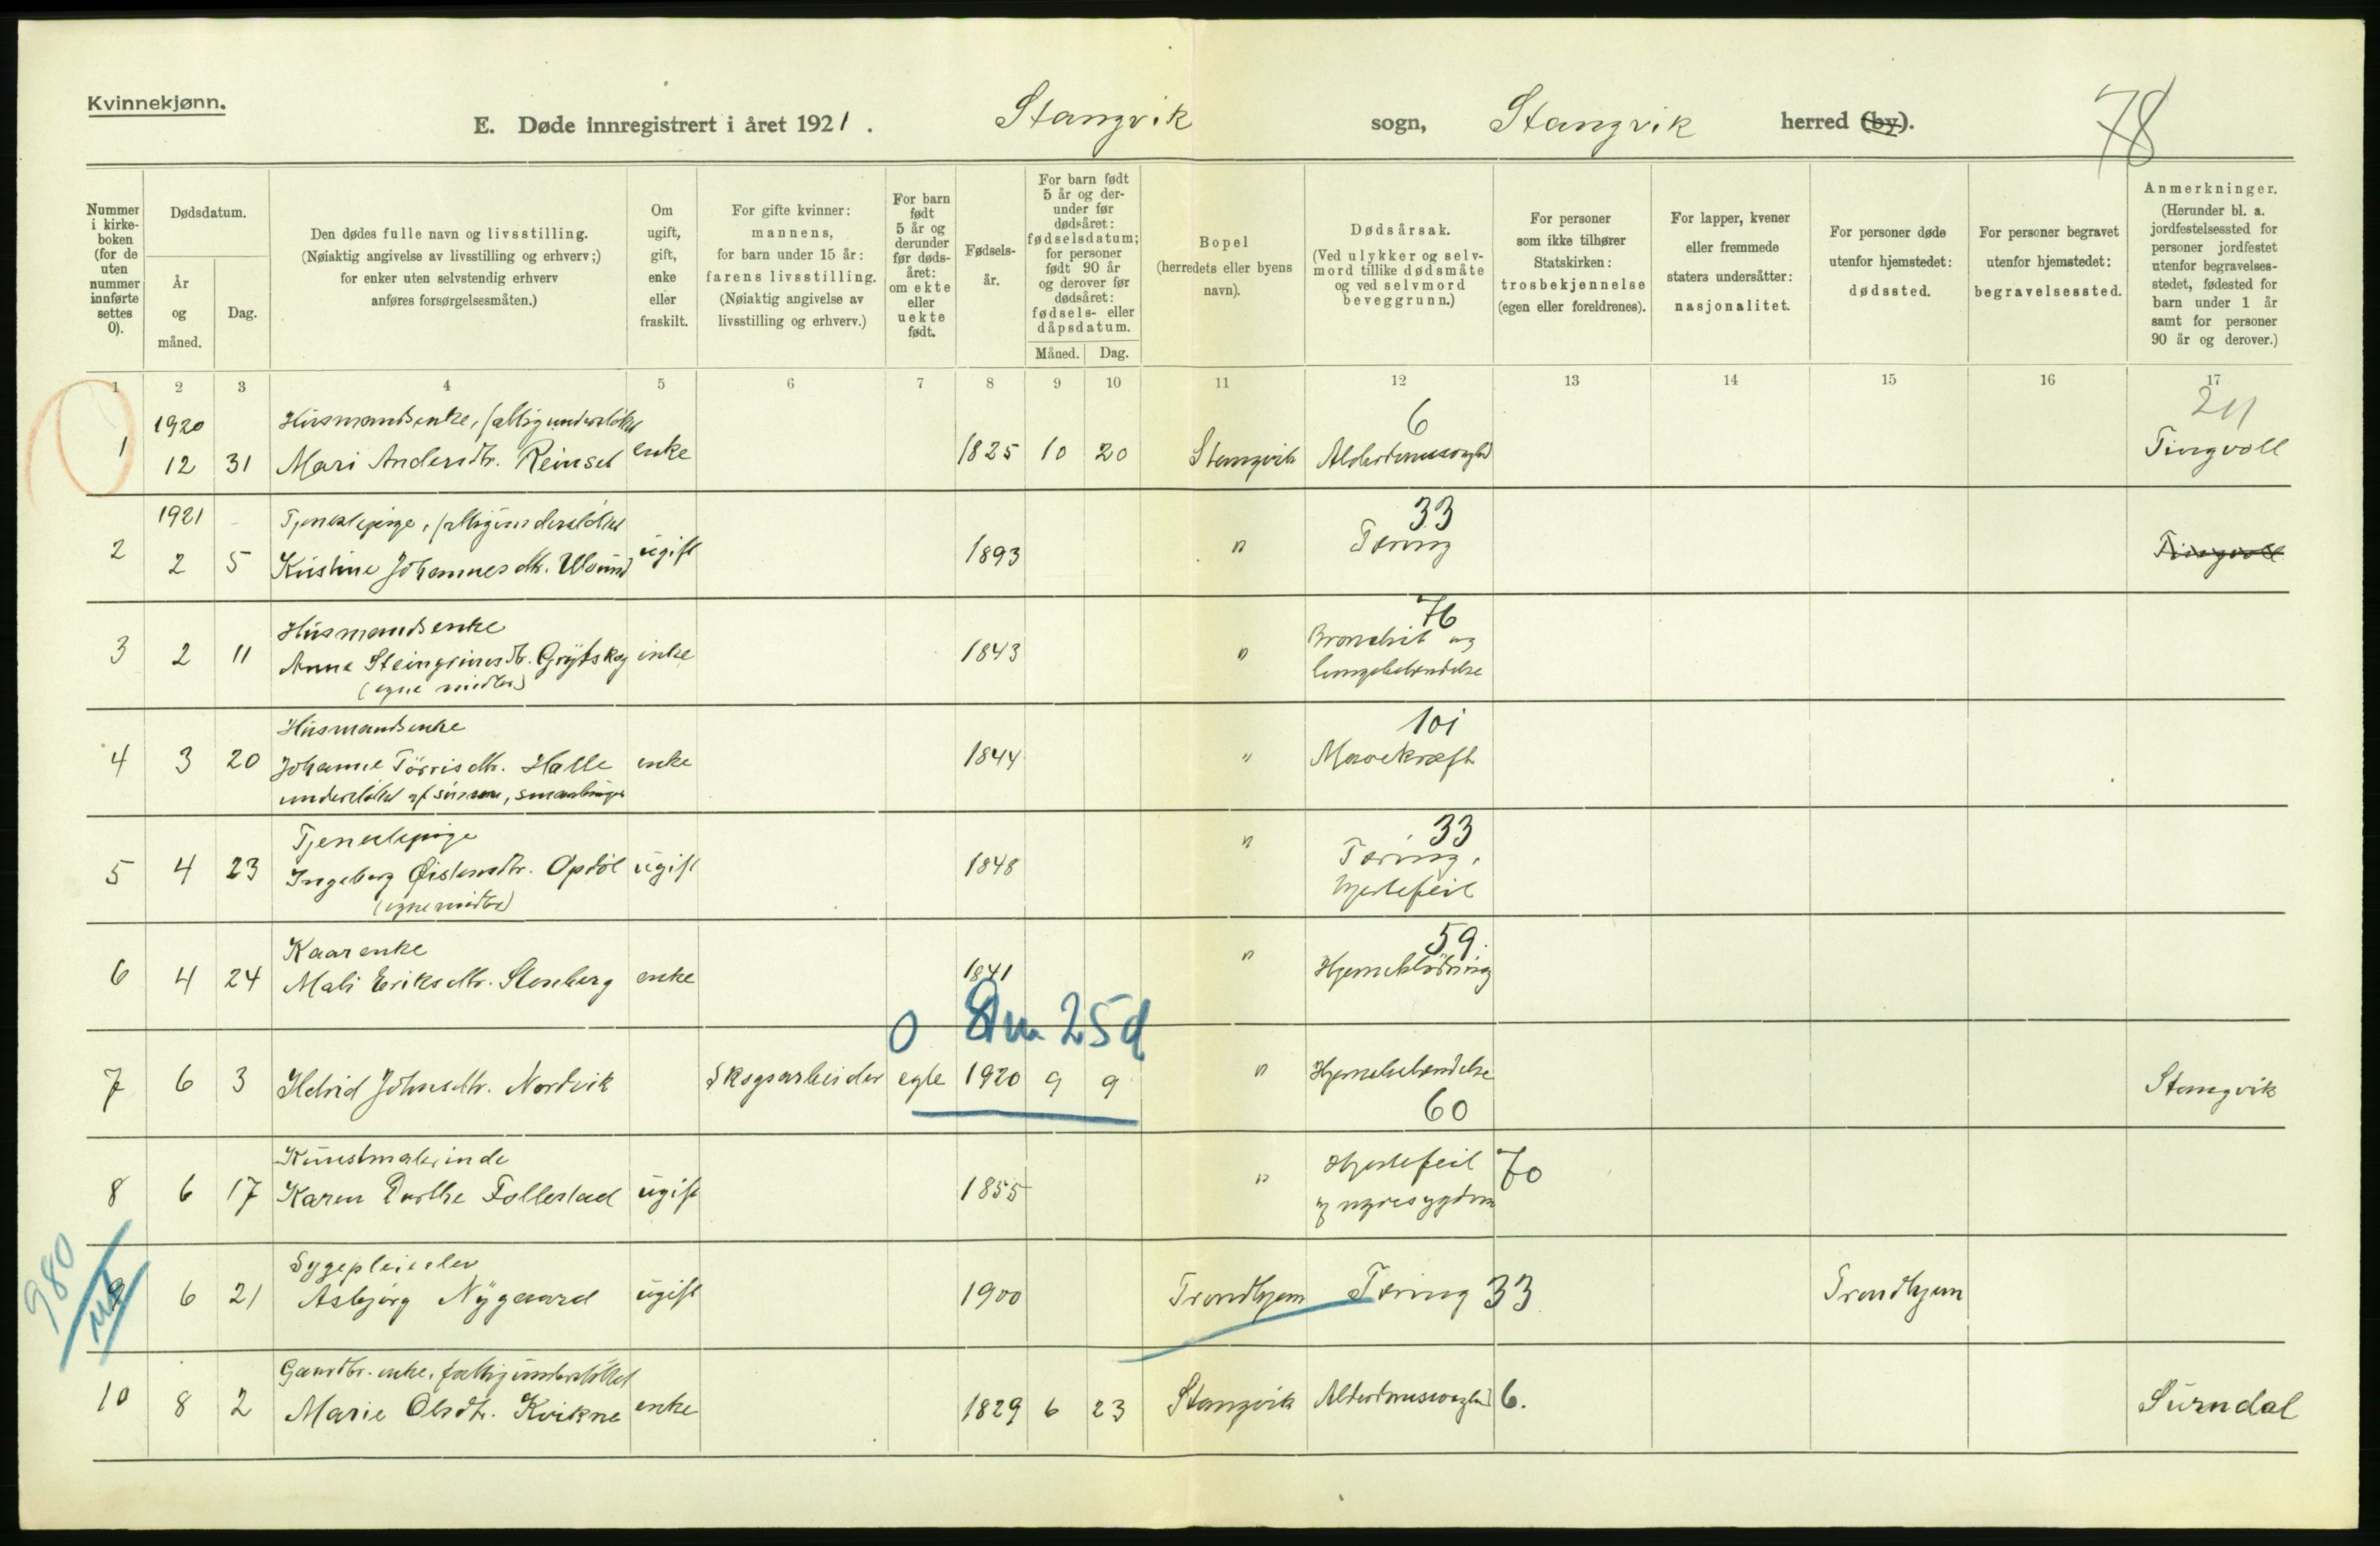 Kvinnekjønn.
E. Døde innregistrert i året 1921. Stangvik sogn, Stangvik herred (by).
78
Nummer i kirkeboken (for de uten nummer innførte settes 0).
Dødsdatum.
År og måned.
Dag.
Den dødes fulle navn og livsstilling.
(Nøiaktig angivelse av livsstilling og erhverv;)
for enker uten selvstendig erhverv
anføres forsørgelsesmåten.)
Om ugift, gift, enke eller fraskilt.
For gifte kvinner:
mannens,
for barn under 15 år:
farens livsstilling.
(Nøiaktig angivelse av
livsstilling og erhverv.)
For barn født 5 år og derunder før dødsåret: om ekte eller uekte født.
Fødselsår.
For barn født 5 år og derunder før dødsåret: fødselsdatum; for personer født 90 år og derover før dødsåret: fødsels- eller dåpsdatum.
Måned. Dag.
Bopel
(herredets eller byens
navn).
Dødsårsak.
(Ved ulykker og selvmord tillike dødsmåte og ved selvmord beveggrunn.)
For personer
som ikke tilhører
Statskirken:
trosbekjennelse
(egen eller foreldrenes).
For lapper, kvener
eller fremmede
staters undersåtter:
nasjonalitet.
For personer døde
utenfor hjemstedet:
dødssted.
For personer begravet
utenfor hjemstedet:
begravelsessted.
Anmerkninger.
(Herunder bl. a. jordfestelsessted for personer jordfestet utenfor begravelsesstedet, fødested for barn under 1 år samt for personer 90 år og derover.)
1 2 3 4 5 6 7 8 9 10 11 12 13 14 15 16 17
1920 Husmandsenke, fattigunderstøttet 6
1 12 31 Mari Andersdtr. Reinset enke 1825 10 20 Stangvik Alderdomssvaghed Tingvoll
1921 Tjenestepige, fattigunderstøttet 33
2 2 5 Kristine Johannesdtr. ugift 1893 " Tæring Tingvoll
Husmandsenke 76
3 2 11 Anne Steingrimsdtr. Grytskog enke 1843 " Bronchit og
(egne midler) lungebetændelse
Husmandsenke 101
4 3 20 Johanne Törrisdtr. Halle enke 1844 " Mavekræft
understøttet af sønnen,
Tjenestepige 33
5 4 23 Ingeborg Øistensdtr. Opdöl ugift 1848 " Tæring,
(egne midler) hjertefeil
Kaarenke 59.
6 4 24 Mali Eriksdtr. Stenberg enke 1841 " Hjerneblödning
0 8 m 25 d
7 6 3 Ildrid Johnsdtr. Nordvik Skogsarbeider egte 1920 9 9 " Hjernebetændelse Stangvik
60
Kunstmalerinde Hjertefeil 70
8 6 17 Karen Dorthe Follestad ugift 1855 " og nyresygdom
980
Sygepleieelev
9 6 21 Asbjørg Nygaard ugift 1900 Trondhjem Tæring 33 Trondhjem
Gaardbr. enke, fattigunderstöttet
10 8 2 Marie Olsdtr. Kvikne enke 1829 6 23 Stangvik Alderdomssvaghed 6. Surndal